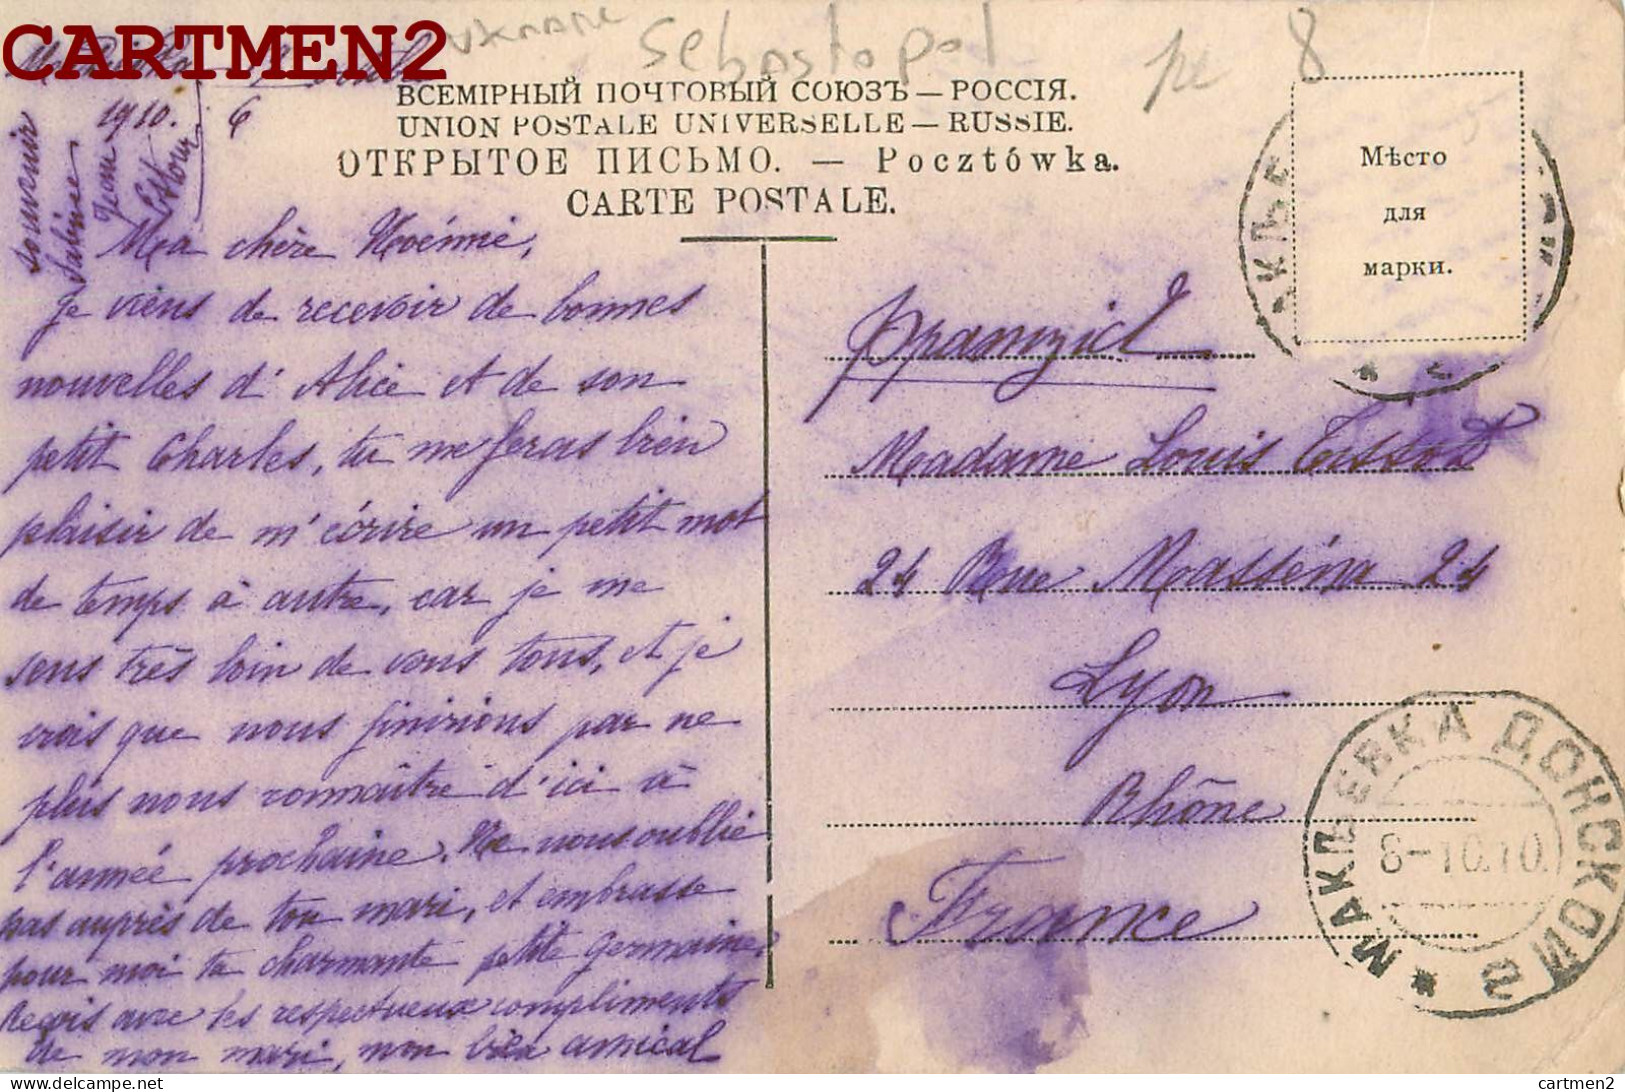 CARTMEN2
UKRAINE Sebastopol
8
1910. 6
ВСЕМІРНЫЙ ПОЧТОВЫЙ СОЮЗЪ — РОССІЯ.
UNION POSTALE UNIVERSELLE — RUSSIE.
ОТКРЫТОЕ ПИСЬМО. — Pocztówka.
CARTE POSTALE.
Мѣсто
для
марки.
souvenir
Sabine
Jean
Ma chère Noémie,
Je viens de recevoir de bonnes
nouvelles d'Alice et de son
petit Charles, tu me feras bien
plaisir de m'écrire un petit mot
de temps à autre, car je me
sens très loin de vous tous, et je
crois que nous finirions par ne
plus nous connaître d'ici à
l'année prochaine. Ne nous oublie
pas auprès de ton mari, et embrasse
pour moi ta charmante petite Germaine.
Reçois avec les respectueux compliments
de mon mari, mon bien amical
Madame Louis Tissot
24 Rue Masséna 24
Lyon
Rhône
France
МАКѢЕВКА ДОНСКОЙ
8-10.10.
cartmen2